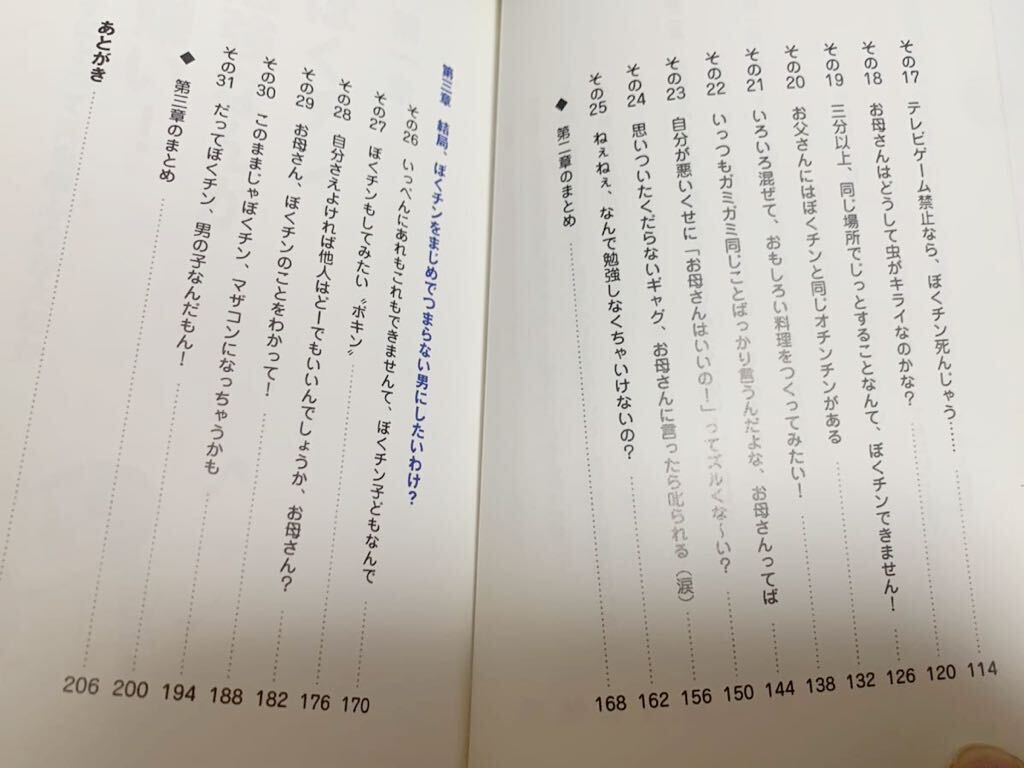 その17 テレビゲーム禁止なら、ぼくチン死んじゃう…… 114
その18 お母さんはどうして虫がキライなのかな？ 120
その19 三分以上、同じ場所でじっとすることなんて、ぼくチンできません！ 126
その20 お父さんにはぼくチンと同じオチンチンがある 132
その21 いろいろ混ぜて、おもしろい料理をつくってみたい！ 138
その22 いっつもガミガミ同じことばっかり言うんだよな、お母さんってば 144
その23 自分が悪いくせに「お母さんはいいの！」ってズルくな〜い？ 150
その24 思いついたくだらないギャグ、お母さんに言ったら叱られる（涙） 156
その25 ねぇねぇ、なんで勉強しなくちゃいけないの？ 162
◆ 第二章のまとめ 168
第三章 結局、ぼくチンをまじめでつまらない男にしたいわけ？
その26 いっぺんにあれもこれもできませんて、ぼくチン子どもなんで 170
その27 ぼくチンもしてみたい〝ボキン〟 176
その28 自分さえよければ他人はどーでもいいんでしょうか、お母さん？ 182
その29 お母さん、ぼくチンのことをわかって！ 188
その30 このままじゃぼくチン、マザコンになっちゃうかも 194
その31 だってぼくチン、男の子なんだもん！ 200
◆ 第三章のまとめ 206
あとがき